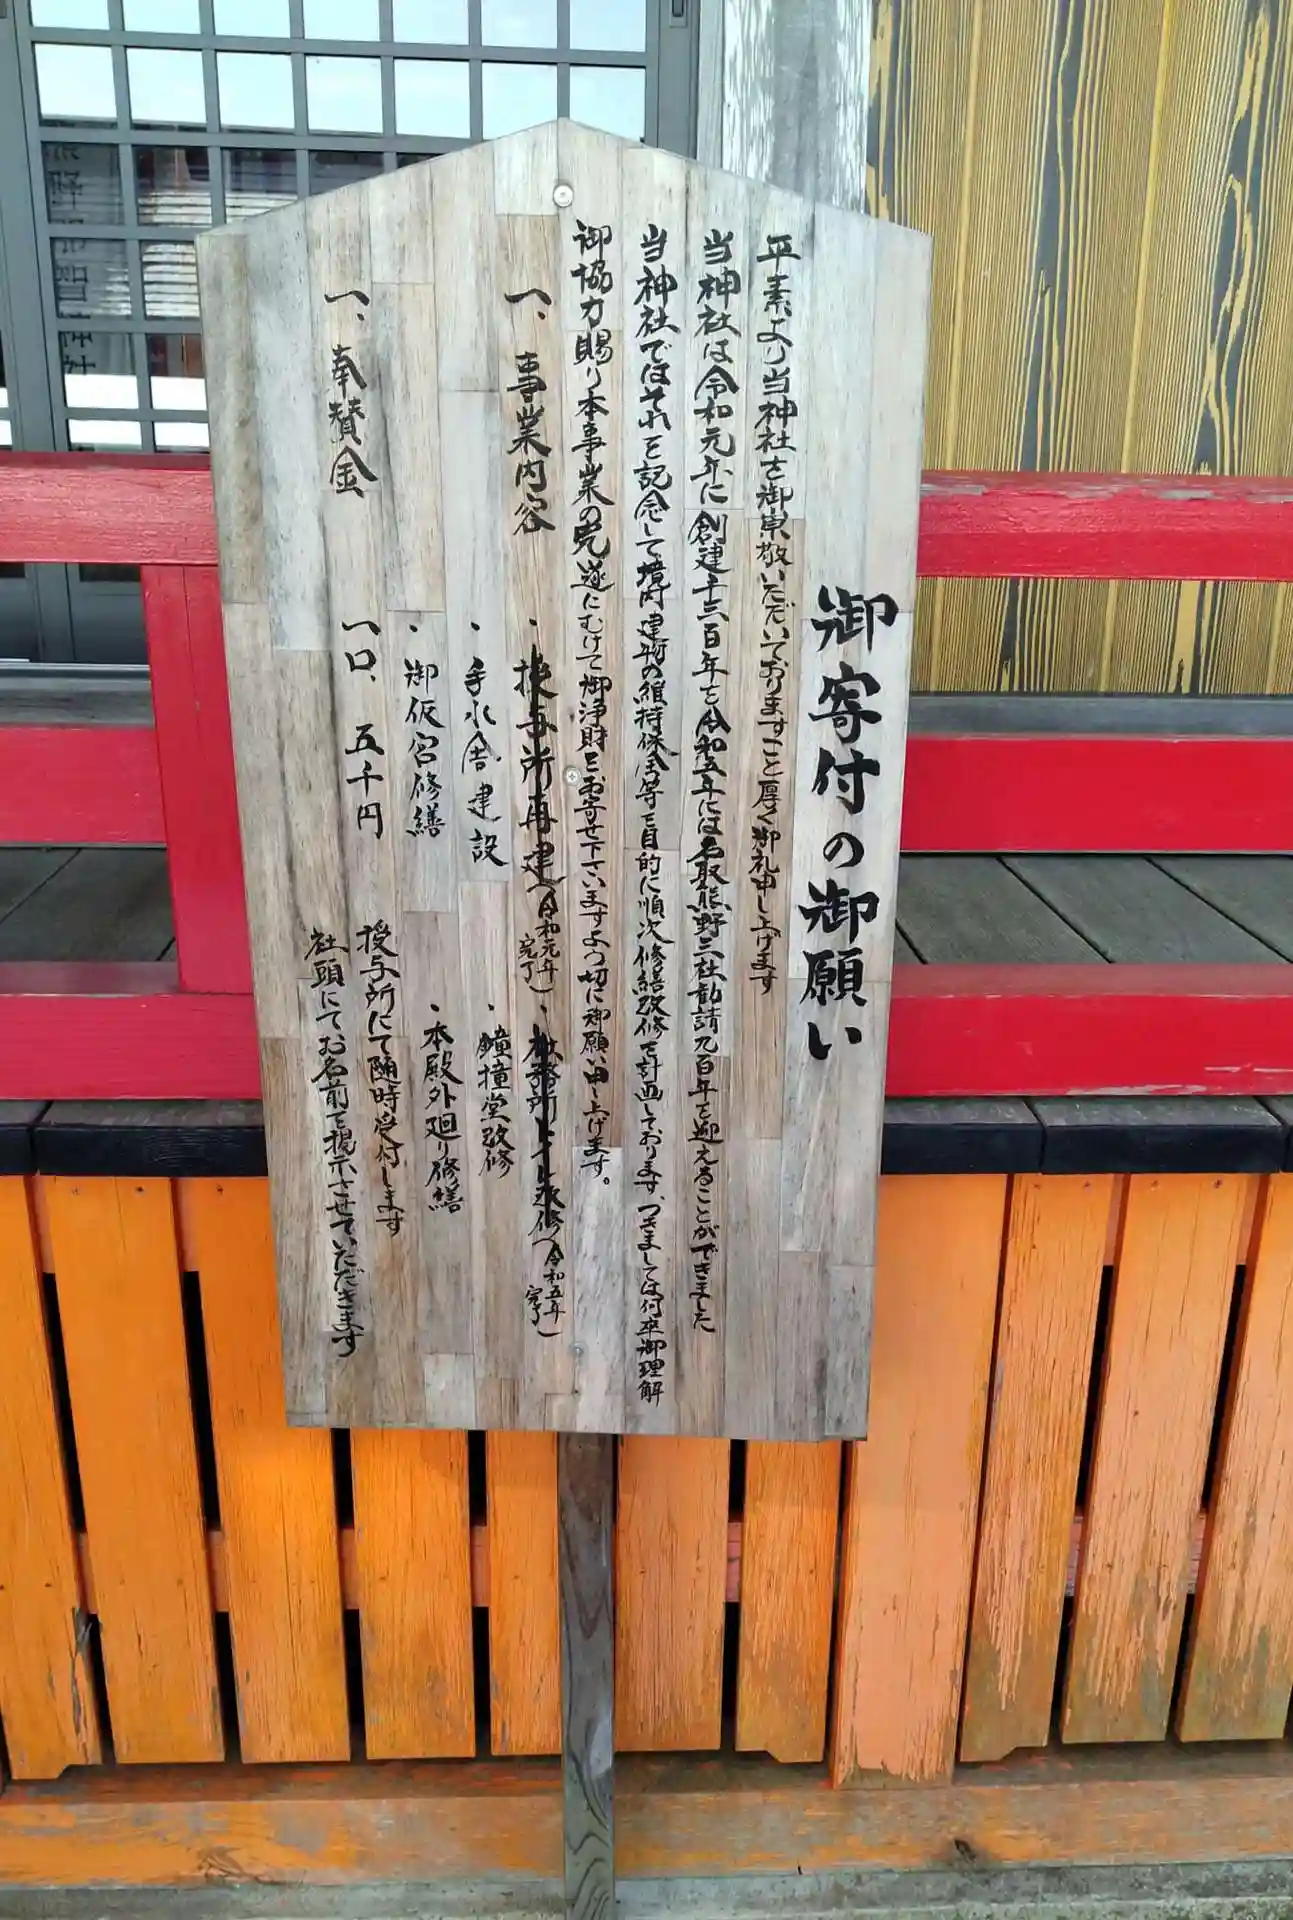 御寄付の御願い
平素より当神社を御崇敬いただいておりますこと厚く御礼申し上げます
当神社は令和元年に創建千三百年を令和五年には名取熊野三社勧請九百年を迎えることができました
当神社ではそれを記念して境内建物の維持保全等を目的に順次修繕改修を計画しております、つきましては何卒御理解
御協力賜り本事業の完遂にむけて御浄財をお寄せ下さいますよう切に御願い申し上げます。
一、事業内容
・授与所再建(令和元年完了)・社務所トイレ改修(令和五年完了)
・手水舎建設 ・鐘撞堂改修
・御仮宮修繕 ・本殿外廻り修繕
一、奉賛金
一口、五千円
授与所にて随時受付します
社頭にてお名前を掲示させていただきます